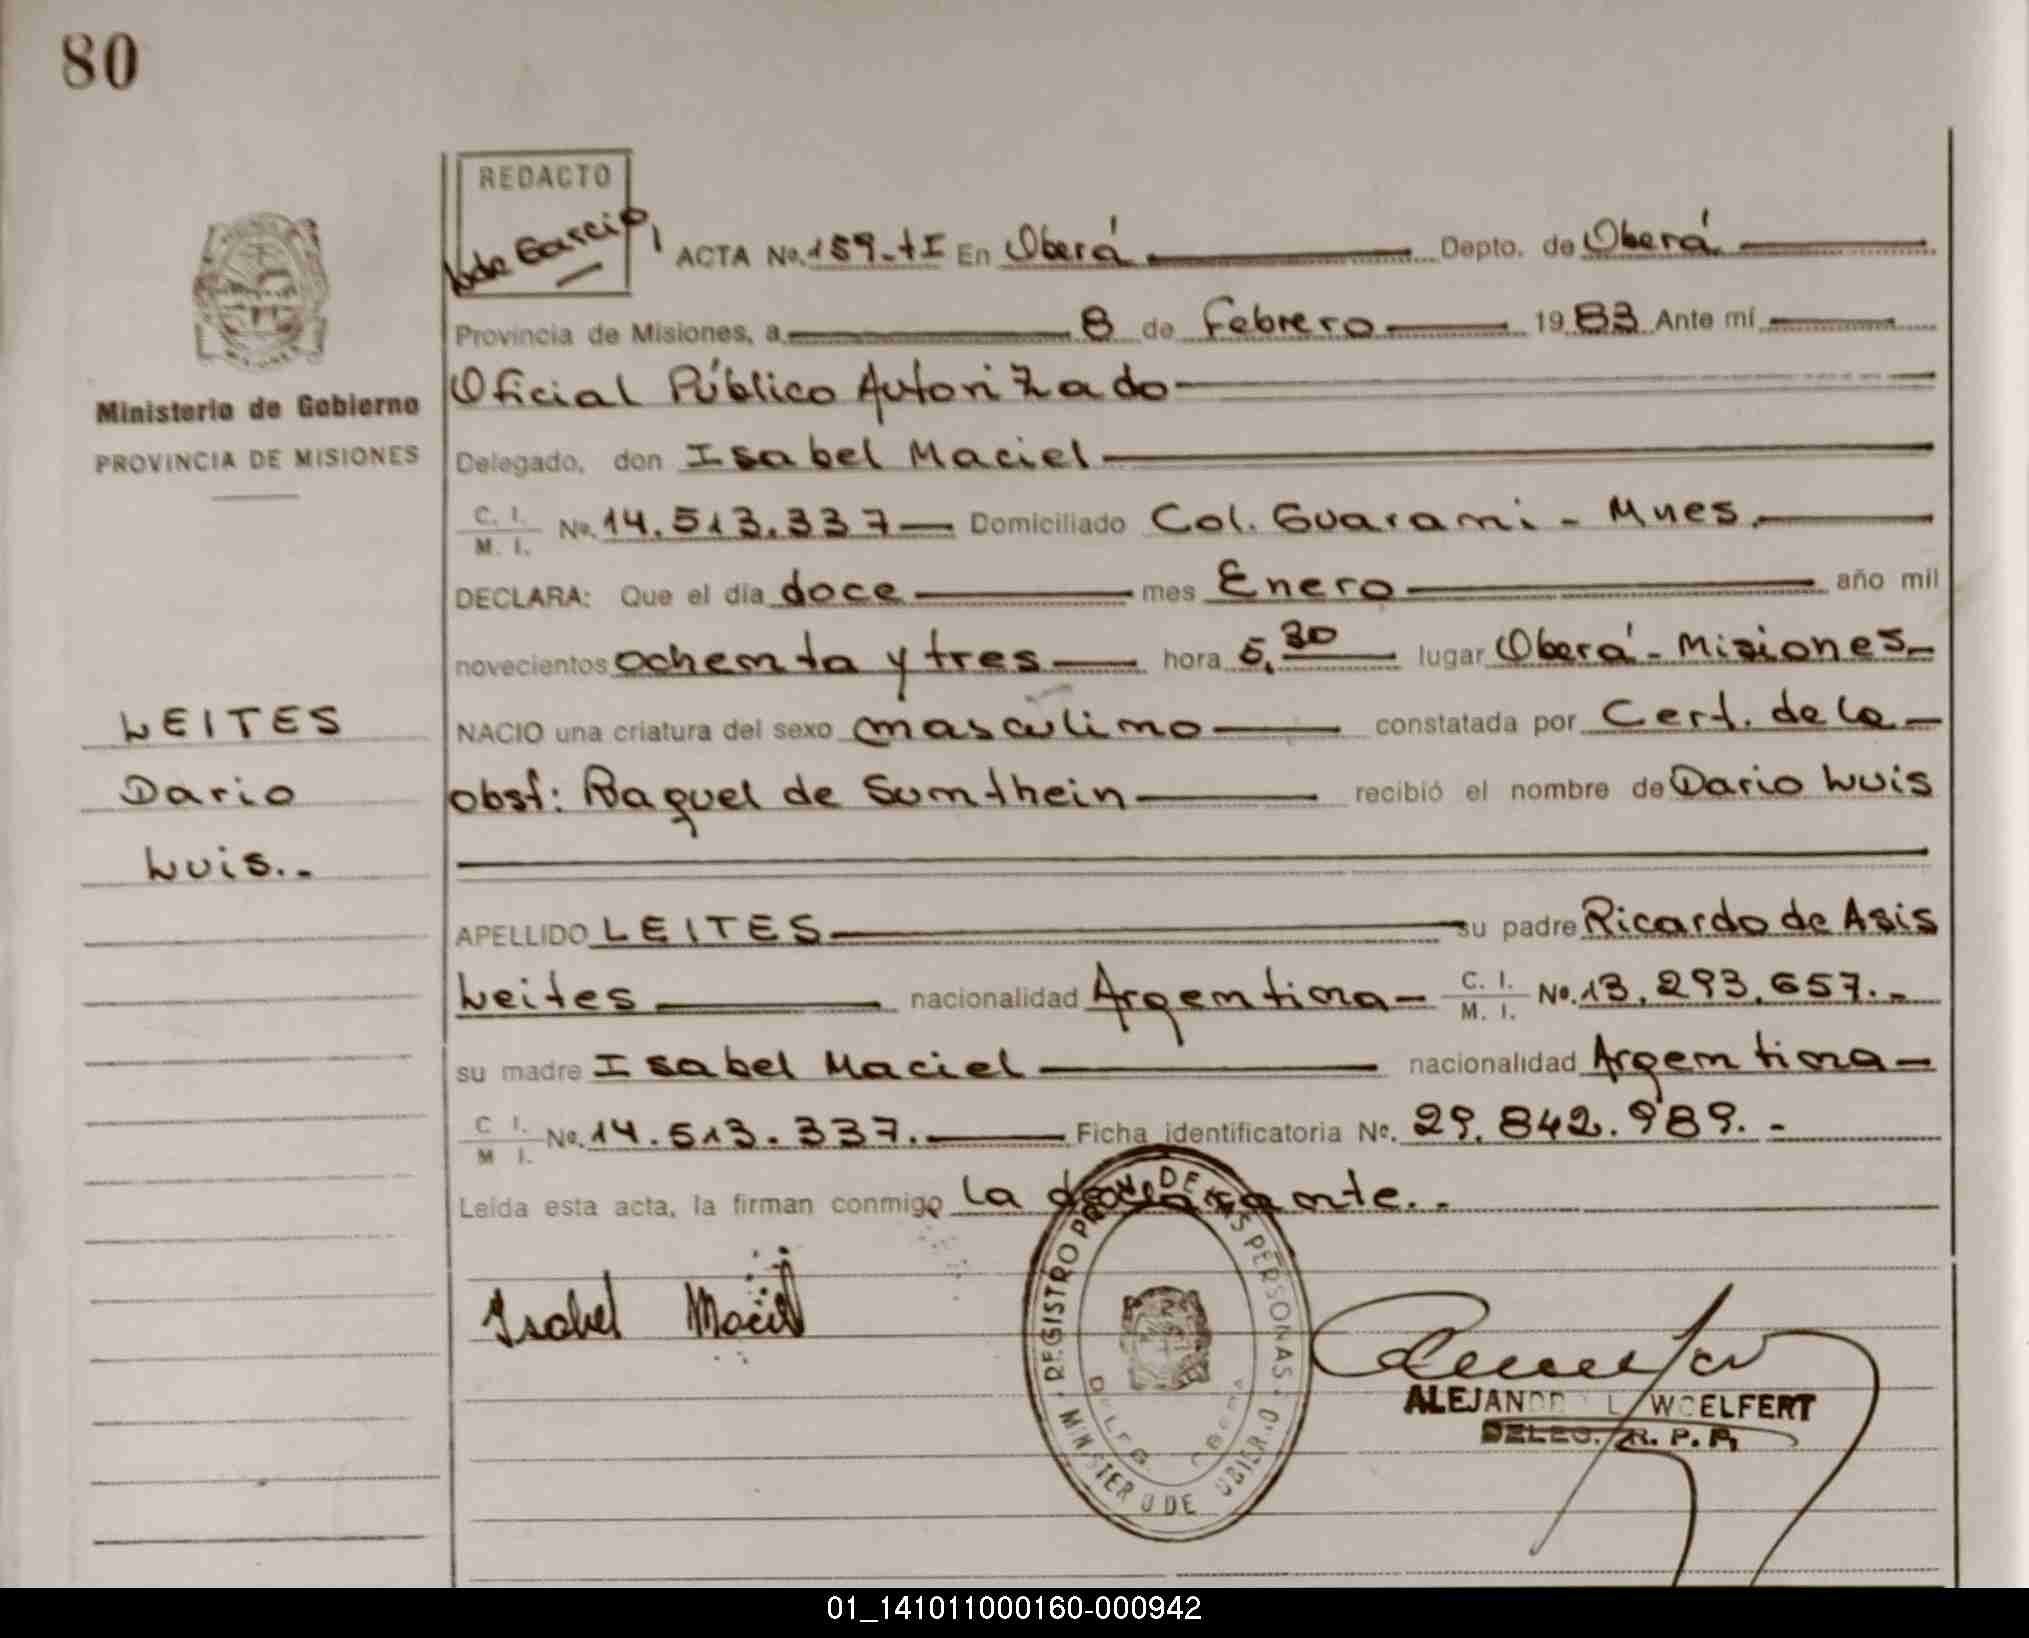 80
REDACTO
de Garcia
ACTA No. 159-tI En Oberá Depto. de Oberá
Provincia de Misiones, a 8 de Febrero 1983 Ante mí
Oficial Público Autorizado
Ministerio de Gobierno
PROVINCIA DE MISIONES
Delegado, don Isabel Maciel
C. I.
M. I. No. 14.513.337 Domiciliado Col. Guarani - Mnes.
DECLARA: Que el día doce mes Enero año mil
novecientos ochenta y tres hora 5,30 lugar Oberá - Misiones
NACIO una criatura del sexo masculino constatada por Cert. de la
obst: Raquel de Sumthein recibió el nombre de Dario Luis
LEITES
Dario
Luis..
APELLIDO LEITES su padre Ricardo de Asis
Leites nacionalidad Argentina C. I.
M. I. No. 13.293.657.-
su madre Isabel Maciel nacionalidad Argentina
C I.
M I. No. 14.513.337. Ficha identificatoria No. 29.842.989.-
Leída esta acta, la firman conmigo la declarante..
Isabel Maciel
REGISTRO PROV. DE LAS PERSONAS
MINISTERIO DE GOBIERNO
ALEJANDRO L WOELFERT
DELEG. R. P. P.
01_141011000160-000942